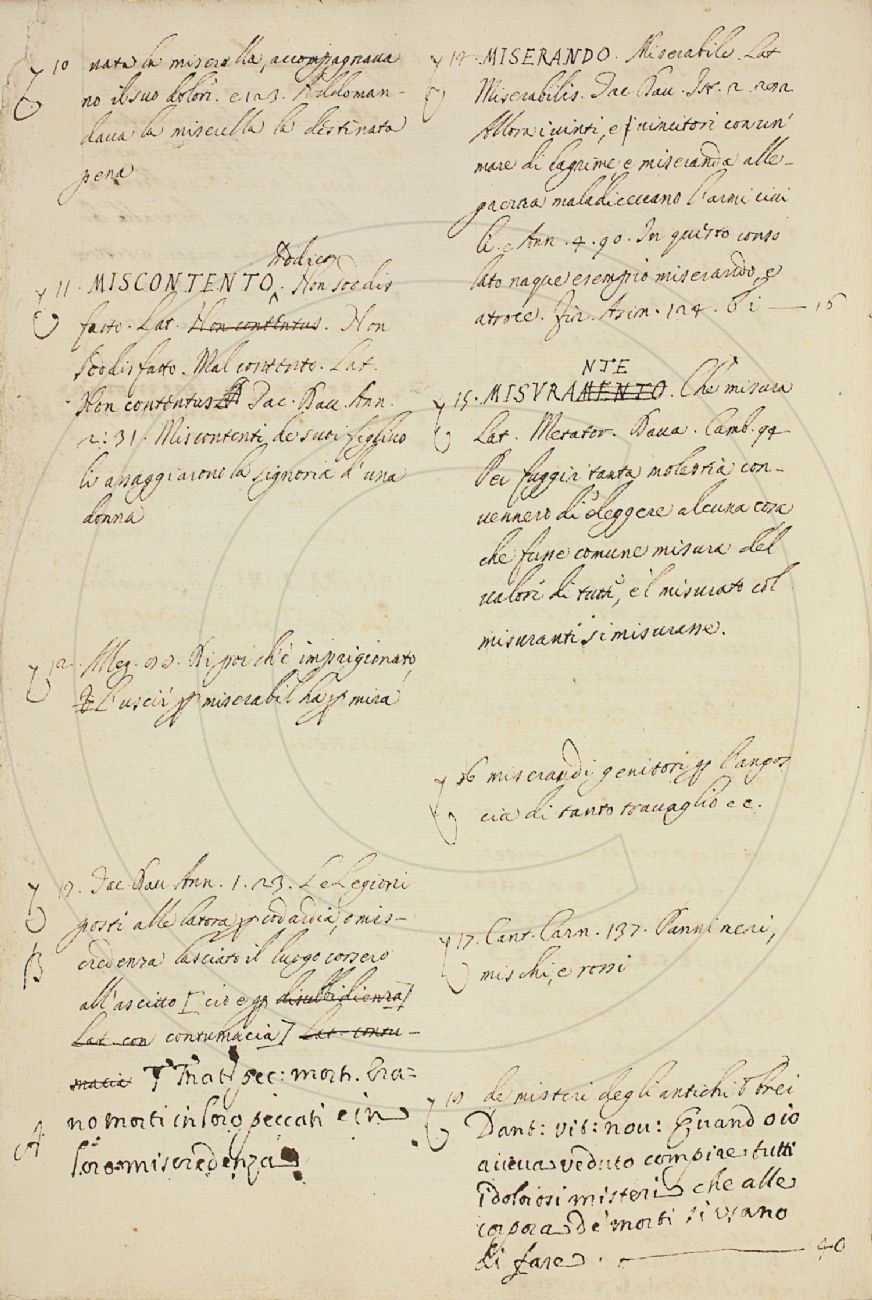 10 nata la miserella, accompagnaua
no il suo dolori. e 123. Addoman-
daua la miserella la destinata
pena
Add. 
11. MISCONTENTO. Non sodis
fatto. Lat. Non contentus. Non
sodisfatto. Mal contento. Lat.
Non contentus Dac. Dau. Ann.
2: 31. Miscontenti de suoi figliuo
li assaggiarono la signoria d'una
donna
12. Alleg. Di poi ch'è imprigionato,
L'uscir p miserabil ha p mira
13. Dac. Dau. Ann. 1. 23. Le Legioni
posti alle latora p codardia, o mis-
credenza lasciato il luogo corsero
all'asciutto [cio è p disubbidienza]
Lat. con contumacia] Lat. contu-
macia T Trat. sec: mort. Era=
no morti in loro peccati e in
A
loro miscredenza
B
14. MISERANDO. Miserabile. Lat
Miserabilis. Dac. Dau. Ist. 2. 292
Allora i uinti, e i uincitori con un'
mare di lagrime e miseranda alle-
maladiceuano l'armi ciui
li. e Ann. 4. 90. In questo conso
lato naque esempio miserando, e
atroce. Fir. Asin. 124. 16
NTE
15. MISURAMENTO. Che misura
Lat. Metator. Daua. Camb. 94
Per fuggir tanta molestia con-
uennero di eleggere alcuna cosa
che fusse comune misura del
valore di tutti, e'l misurato col
misuranti si misurasse.
16 miserandi genitori p l'angos
cia di tanto trauaglio e c.
17. Cant. Carn. 137. Panni neri,
mischi, e rossi
de misteri degli antichi Ebrei
Dant: vit: nou: Quando io
aueua veduto compire tutti
i dolorosi misteri che alle
corpora de' morti si usano
di fare. 40